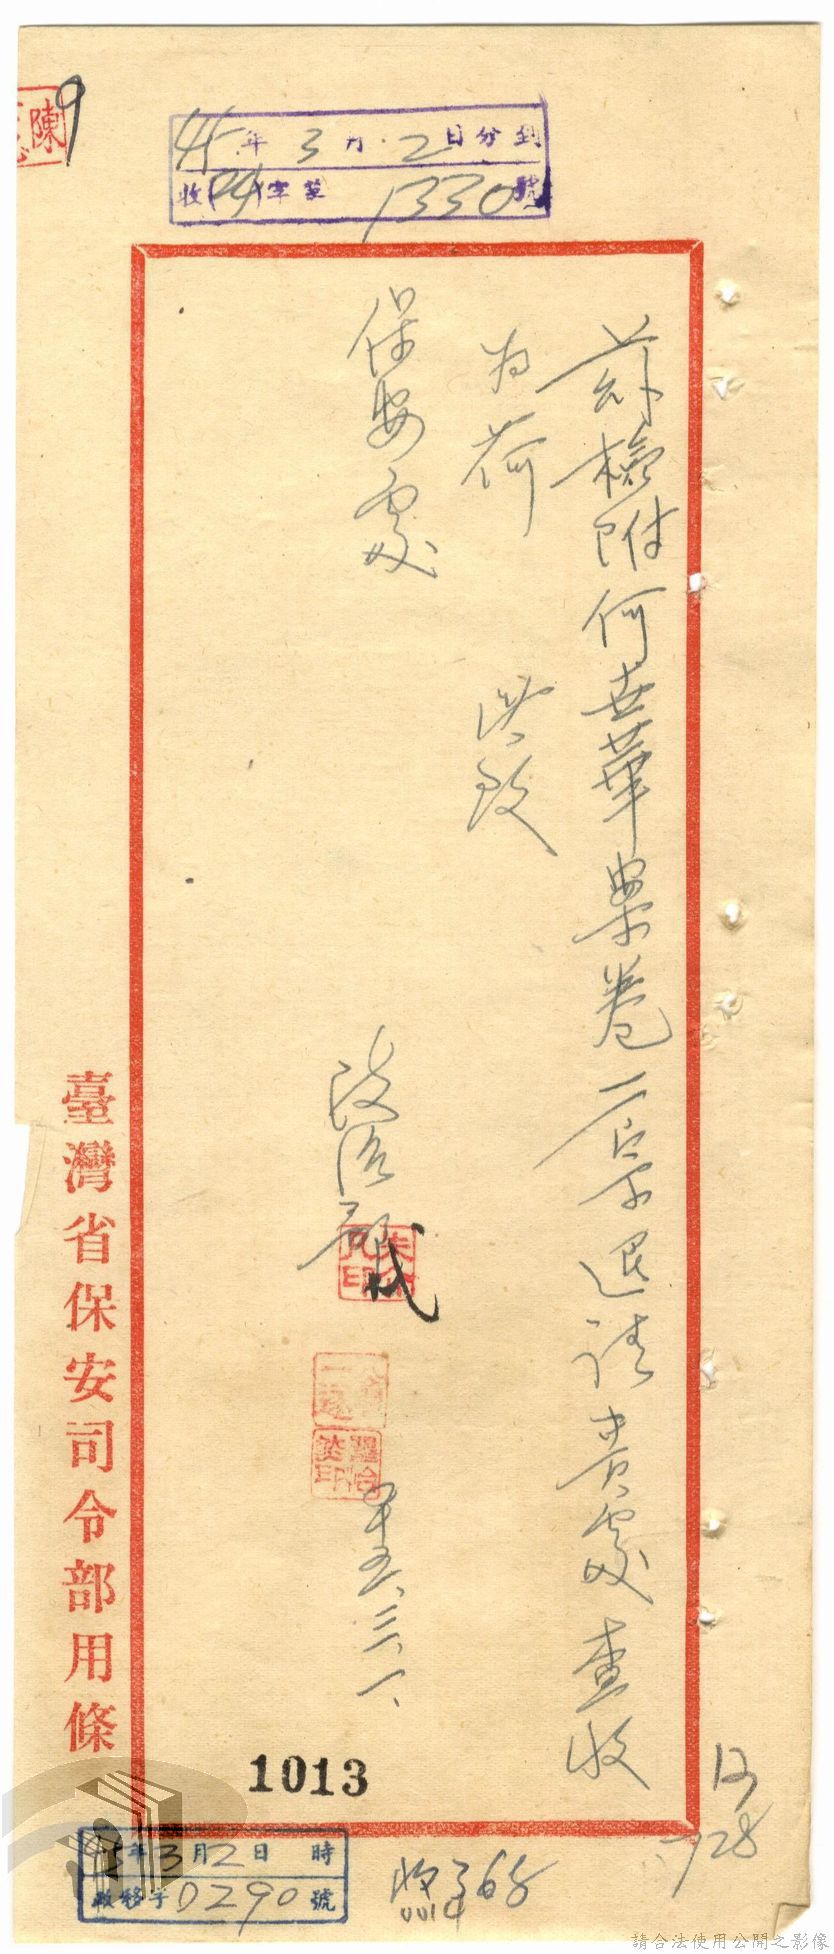 陳
9
45年3月2日分到
收(44)字第1330號
茲檢附何世華案卷一宗退請貴處查收
為荷 此致
保安處
政治部
代
四五、三、一、
臺灣省保安司令部用條
1013
45年3月2日 時
移字0290號
收368
0014
728
請合法使用公開之影像